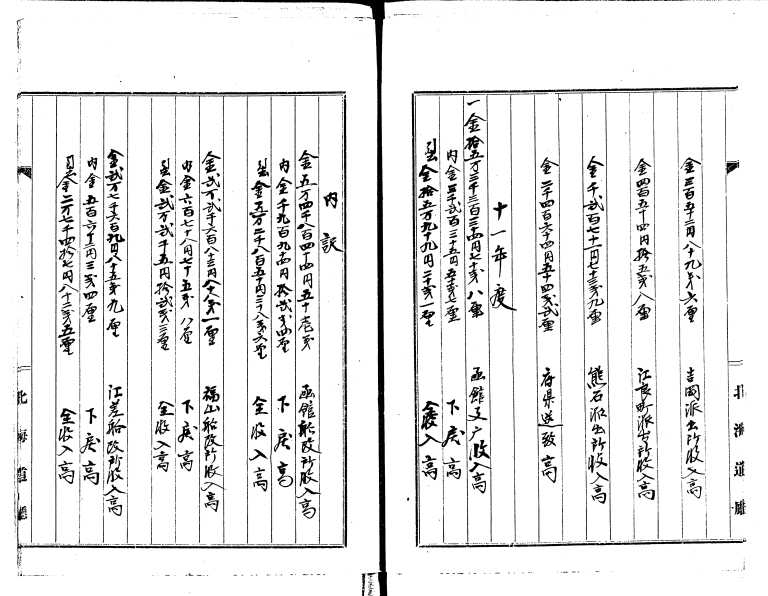 金三百五十二円八十九銭六厘 吉岡派出所収入高
金四百五十四円拾五銭八厘 江良町派出所収入高
金千弐百七十一円七十三銭九厘 熊石派出所収入高
金二千四百六十四円五十四銭弐厘 府県送致高
十一年度
一金拾五万三千三百三十四円七十弐銭八厘 函館支庁収入高
内金三千弐百三十五円五十弐銭七厘 下戻高
引金拾五万九十九円二十銭一厘 全収入高
北海道庁
内訳
金五万四千八百四十四円五十壱銭 函館船改所収入高
内金千九百九十四円拾弐銭四厘 下戻高
引金五万二千八百五十円三十八銭六厘 全収入高
金弐万弐千六百八十三円八十八銭一厘 福山船改所収入高
内金六百七十八円七十五銭八厘 下戻高
引金弐万弐千五円拾弐銭三厘 全収入高
金弐万七千六百九円八十五銭九厘 江差船改所収入高
内金五百六十二円三銭四厘 下戻高
引金二万七千四拾七円八十二銭五厘 全収入高
北海道庁